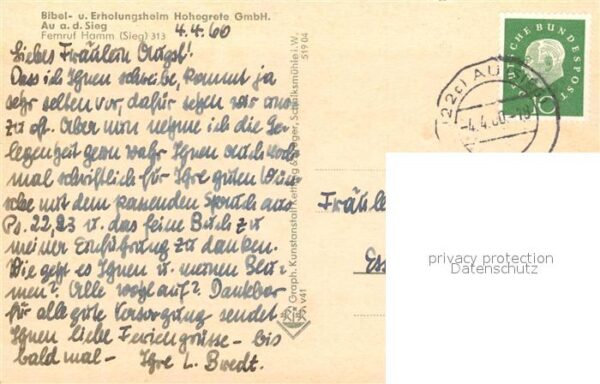 Bibel- u. Erholungsheim Hohegrete GmbH.
Au a. d. Sieg
Fernruf Hamm (Sieg) 313
4.4.60
Liebes Fräulein Augst!
Dass ich Ihnen schreibe, kommt ja
sehr selten vor, dafür sehen wir uns
zu oft. Aber nun nehme ich die Ge-
legenheit gern wahr Ihnen auch noch
mal schriftlich für Ihre guten Wün-
sche mit dem passenden Spruch aus
Ps. 22,23 u. das feine Buch zu
meiner Einführung zu danken.
Wie geht es Ihnen u. meinen Blu-
men? Alle wohl auf? Dankbar
für alle gute Versorgung sendet
Ihnen liebe Feriengrüsse - bis
bald mal - Ihre L. Bredt.
Graph. Kunstanstalt Schalksmühle i.W.
519 04
v41
Fräulein
DEUTSCHE BUNDESPOST
10
(22c) AU (SIEG)
-4.4.60.-18
privacy protection
Datenschutz